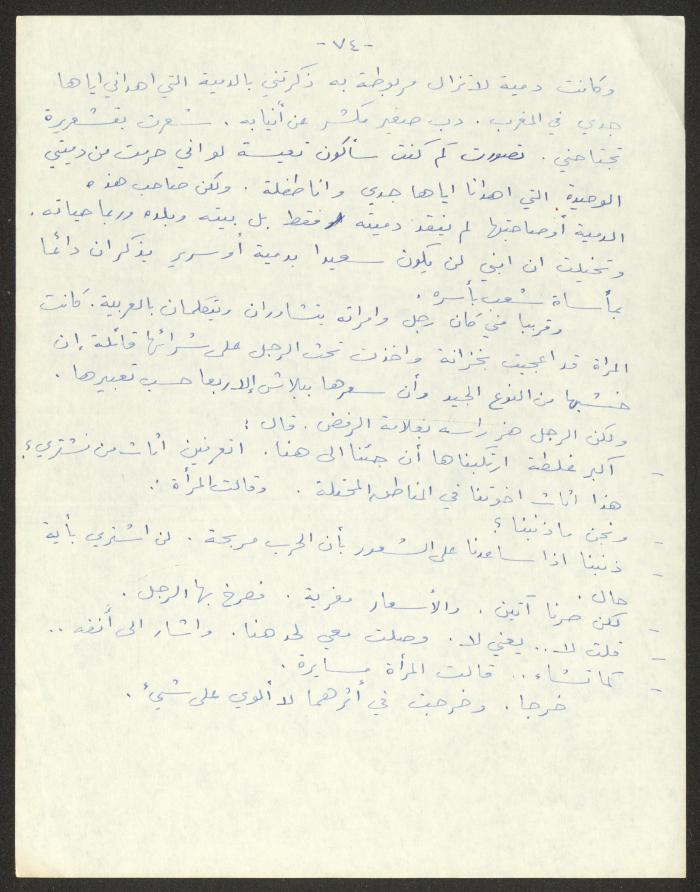 -٧٤-
وكانت دمية لاتزال مربوطة به ذكرتني بالدمية التي اهداني اياها
جدي في المغرب. دب صغير مكشر عن أنيابه. شعرت بقشعريرة
تجتاحني. تصورت كم كنت سأكون تعيسة لو اني حرمت من دميتي
الوحيدة التي اهدانا اياها جدي وانا طفلة. ولكن صاحب هذه
الدمية أوصاحبتها لم يفقد دميته فقط بل بيته وبلده وربما حياته.
وتخيلت ان ابني لن يكون سعيدا بدمية أو سرير يذكران دائما
بمأساة شعب بأسره.
وقريبا مني كان رجل وامرأته يتشاوران ويتكلمان بالعربية. كانت
المرأة قد اعجبت بخزانة واخذت تحث الرجل على شرائها قائلة إن
خشبها من النوع الجيد وأن سعرها ببلاش إلا ربعا حسب تعبيرها.
ولكن الرجل هز راسه بعلامة الرفض. قال:
- أكبر غلطة ارتكبناها أن جئنا الى هنا. اتعرفين أثاث من نشتري؟
هذا اثاث اخوتنا في المناطق المحتلة. وقالت المرأة:
- ونحن ما ذنبنا؟
- ذنبنا اذا ساعدنا على الشعور بأن الحرب مربحة. لن اشتري بأية
حال.
- لكن صرنا آتين. والأسعار مغرية. فصرخ بها الرجل.
- قلت لا.. يعني لا. وصلت معي لحد هنا. واشار الى أنفه..
- كما تشاء.. قالت المرأة مسايرة.
خرجا. وخرجت في أثرهما لا ألوي على شيء.